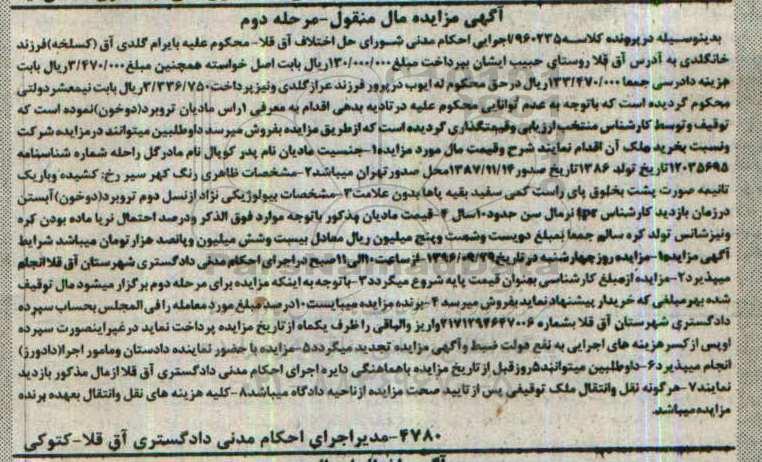 آگهی مزایده مال منقول-مرحله دوم
بدینوسیله در پرونده کلاسه ۹۶۰۲۳۵/اجرایی احکام مدنی شورای حل اختلاف آق قلا- محکوم علیه بایرام گلدی آق (کسلخه) فرزند
خانگلدی به آدرس آق قلا روستای حبیب ایشان بپرداخت مبلغ ۱۳۰/۰۰۰/۰۰۰ریال بابت اصل خواسته همچنین مبلغ ۳/۴۷۰/۰۰۰ریال بابت
هزینه دادرسی جمعا ۱۳۳/۴۷۰/۰۰۰ریال در حق محکوم له ایوب درپرور فرزند عراز گلدی و نیز پرداخت ۳/۳۳۶/۷۵۰ریال بابت نیمعشر دولتی
محکوم گردیده است که باتوجه به عدم توانایی محکوم علیه در تادیه بدهی اقدام به معرفی ۱راس مادیان تروبرد(دوخون)نموده است که
توقیف و توسط کارشناس منتخب ارزیابی و قیمتگذاری گردیده است که از طریق مزایده بفروش میرسد داوطلبین میتوانند در مزایده شرکت
ونسبت بخرید ملک آن اقدام نمایند شرح وقیمت مال مورد مزایده۱-جنسیت مادیان نام پدر کوپال نام مادر گل راحله شماره شناسنامه
۱۲۰۳۵۶۹۵تاریخ تولد ۱۳۸۶تاریخ صدور ۱۳۸۷/۱۱/۱۴محل صدور تهران میباشد۲-مشخصات ظاهری رنگ کهر سیر رخ: کشیده وباریک
تانیمه صورت پشت بخلوق پای راست کمی سفید بقیه پاها بدون علامت۳-مشخصات بیولوژیکی نژاد ازنسل دوم تروبرد(دوخون)آبستن
در زمان بازدید کارشناس tpr نرمال سن حدود۱۰سال ۴-قیمت مادیان مذکور باتوجه موارد فوق الذکر ودرصد احتمال نریا ماده بودن کره
ونیز شانس تولد کره سالم جمعا بمبلغ دویست وشصت وپنج میلیون ریال معادل بیست وشش میلیون وپانصد هزار تومان میباشد شرایط
آگهی مزایده۱-مزایده روز چهارشنبه در تاریخ ۱۳۹۶/۰۹/۲۹-از ساعت ۱۰الی۱۱صبح در اجرای احکام مدنی دادگستری شهرستان آق قلاانجام
میپذیرد۲-مزایده ازمبلغ کارشناسی بعنوان قیمت پایه شروع میگردد۳-باتوجه به اینکه مزایده برای مرحله دوم برگزار میشود مال توقیف
شده بهر مبلغی که خریدار پیشنهاد نماید بفروش میرسد ۴-برنده مزایده میبایست ۱۰درصد مبلغ مورد معامله را فی المجلس بحساب سپرده
دادگستری شهرستان آق قلا بشماره ۲۱۷۱۲۹۴۶۴۷۰۰۶واریز والباقی را ظرف یکماه از تاریخ مزایده پرداخت نماید در غیراینصورت سپرده
اوپس از کسر هزینه های اجرایی به نفع دولت ضبط وآگهی مزایده تجدید میگردد۵-مزایده با حضور نماینده دادستان ومامور اجرا(دادورز)
انجام میپذیرد۶-داوطلبین میتوانند۵روز قبل از تاریخ مزایده باهماهنگی دایره اجرای احکام مدنی دادگستری آق قلا ازمال مذکور بازدید
نمایند۷-هرگونه نقل وانتقال ملک توقیفی پس از تایید صحت مزایده از ناحیه دادگاه میباشد۸-کلیه هزینه های نقل وانتقال بعهده برنده
مزایده میباشد.
۴۷۸۰-مدیر اجرای احکام مدنی دادگستری آق قلا-کتوکی